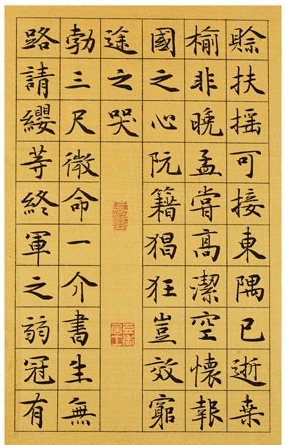 賒扶搖可接東隅已逝桒
榆非晚孟嘗高潔空懷報
國之心阮籍猖狂豈效窮
途之哭
勃三尺微命一介書生無
路請纓等終軍之弱冠有